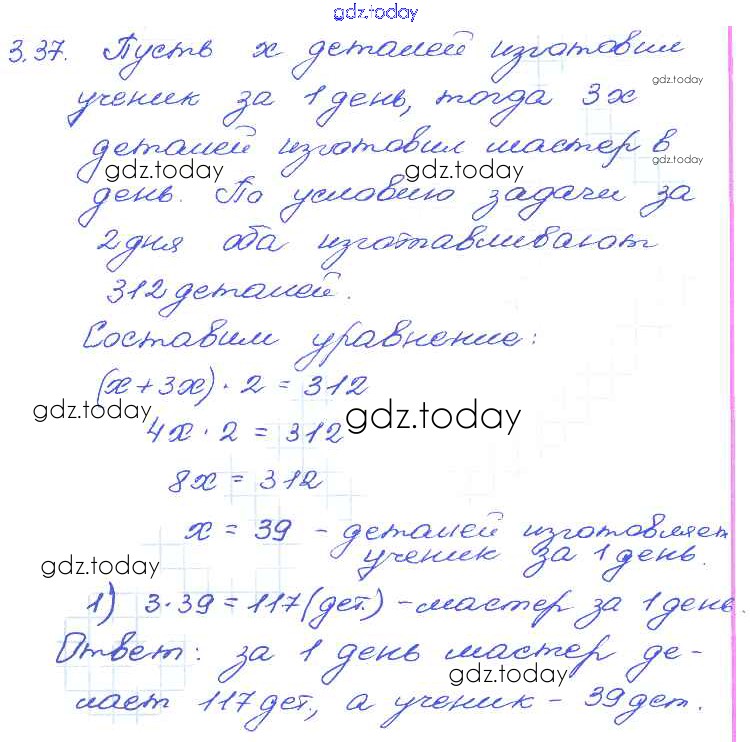 gdz.today
3.37. Пусть x деталей изготовил
gdz.today
ученик за 1 день, тогда 3x
деталей изготовил мастер в
gdz.today
gdz.today
gdz.today
день. По условию задачи за
2 дня оба изготавливают
312 деталей.
Составим уравнение:
(x + 3x) · 2 = 312
gdz.today
gdz.today
4x · 2 = 312
8x = 312
x = 39 – деталей изготовляет
ученик за 1 день.
gdz.today
1) 3·39 = 117 (дет.) – мастер за 1 день.
Ответ: за 1 день мастер де-
gdz.today
лает 117 дет., а ученик – 39 дет.